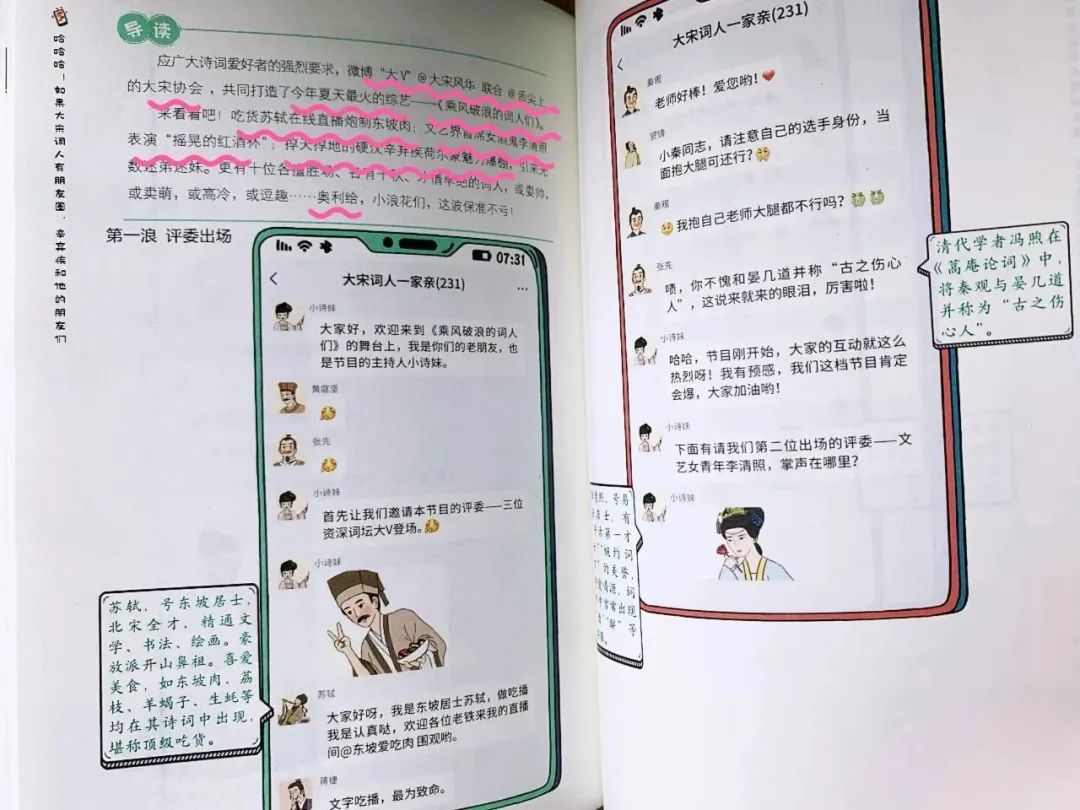 哈哈哈！如果大宋词人有朋友圈：辛弃疾和他的朋友们
导读
应广大诗词爱好者的强烈要求，微博“大V”@大宋风华 联合 @舌尖上
的大宋协会，共同打造了今年夏天最火的综艺——《乘风破浪的词人们》。
来看看吧！吃货苏轼在线直播炮制东坡肉；文艺界首席女酒鬼李清照
表演“摇晃的红酒杯”；
的硬汉辛弃疾
魅力爆棚，引来无
数迷弟迷妹。更有十位各擅胜场、各有千秋、才情卓绝的词人，或耍帅，
或卖萌，或高冷，或逗趣……奥利给，小浪花们，这波保准不亏！
第一浪 评委出场
07:31
大宋词人一家亲(231)
小诗妹
大家好，欢迎来到《乘风破浪的词人
们》的舞台上，我是你们的老朋友，也
是节目的主持人小诗妹。
黄庭坚
张先
小诗妹
首先让我们邀请本节目的评委——三位
资深词坛大V登场。
小诗妹
苏轼，号东坡居士，
北宋全才，精通文
学、书法、绘画。豪
放派开山鼻祖。喜爱
美食，如东坡肉、荔
枝、羊蝎子、生蚝等
均在其诗词中出现，
堪称顶级吃货。
苏轼
大家好呀，我是东坡居士苏轼，做吃播
我是认真哒，欢迎各位老铁来我的直播
间@东坡爱吃肉 围观哟。
蒋捷
文字吃播，最为致命。
大宋词人一家亲(231)
秦观
老师好棒！爱您哟！
贺铸
小秦同志，请注意自己的选手身份，当
面抱大腿可还行？
秦观
我抱自己老师大腿都不行吗？
张先
啧，你不愧和晏几道并称“古之伤心
人”，这说来就来的眼泪，厉害啦！
清代学者冯煦在
《蒿庵论词》中，
将秦观与晏几道
并称为“古之伤
心人”。
小诗妹
哈哈，节目刚开始，大家的互动就这么
热烈呀！我有预感，我们这档节目肯定
会爆，大家加油哟！
小诗妹
下面有请我们第二位出场的评委——文
艺女青年李清照，掌声在哪里？
小诗妹
清照，号易
居士，有
古第一才
”“婉约词
”的美誉，
词
中常常出现
“醉”等